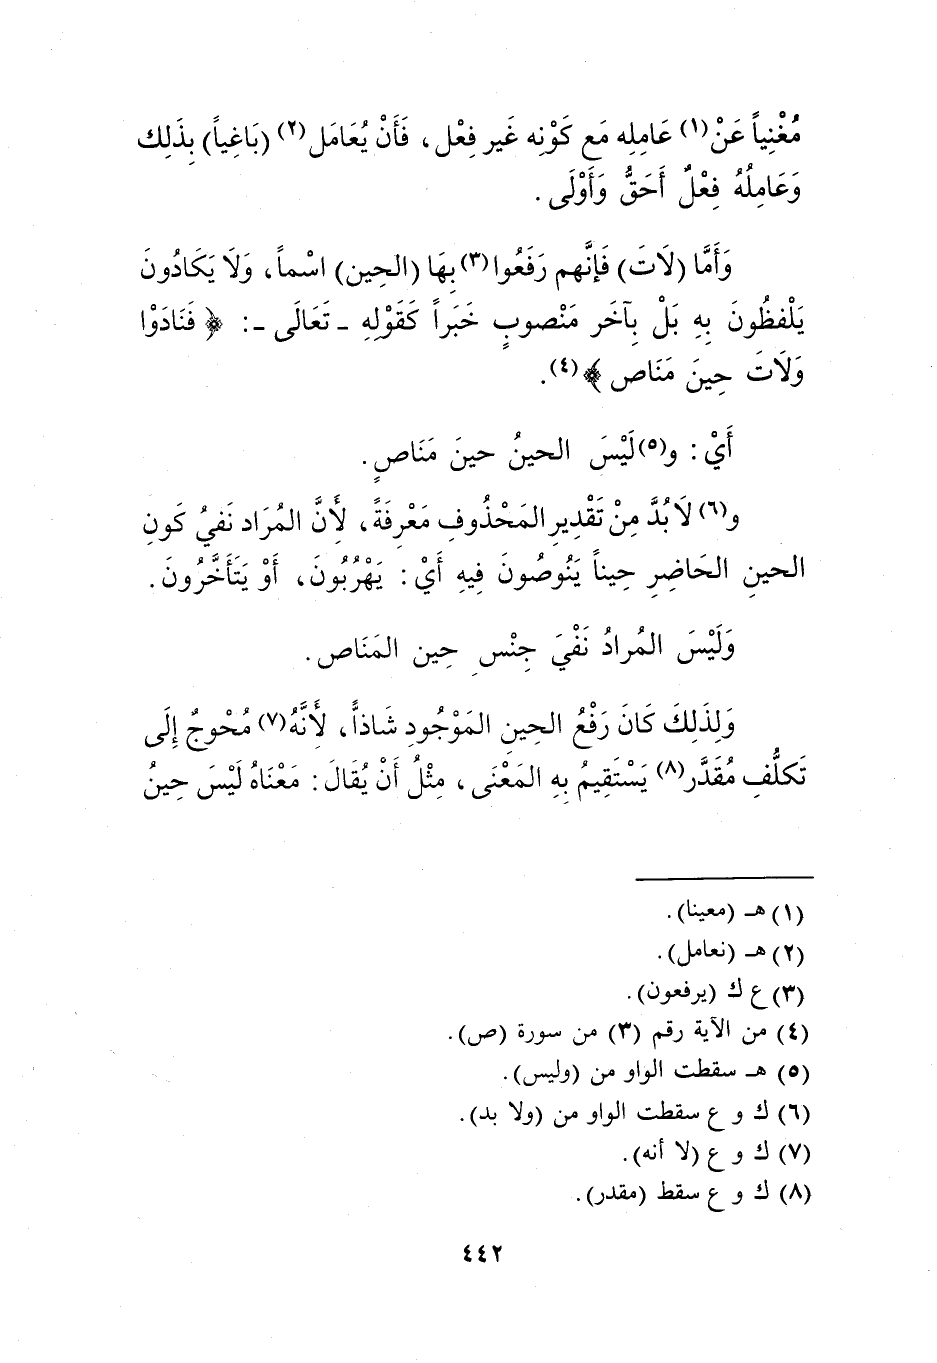 مُغْنِياً عَنْ(١) عَامِلِه مَع كَوْنِه غَير فِعْل، فَأَنْ يُعَامَل(٢) (بَاغِياً) بِذَلِك
وَعَامِلُهُ فِعْلٌ أَحَقُّ وَأَوْلَى.
وَأَمَّا (لَاتَ) فَإِنَّهم رَفَعُوا(٣) بِهَا (الحِين) اسْماً، وَلَا يَكَادُونَ
يَلْفظُونَ بِهِ بَلْ بِآخَر مَنْصوبٍ خَبَراً كَقَوْلِهِ - تَعَالَى -: ﴿ فَنَادَوْا
وَلَاتَ حِينَ مَنَاص ﴾(٤).
أَيْ: و(٥)لَيْسَ الحينُ حينَ مَنَاصٍ.
و(٦) لَا بُدَّ مِنْ تَقْدِيرِ المَحْذُوفِ مَعْرِفَةً، لِأَنَّ المُرَاد نَفيُ كَونِ
الحينِ الحَاضِرِ حِيناً يَنُوصُونَ فِيهِ أَيْ: يَهْرُبُونَ، أَوْ يَتَأَخَّرُونَ.
وَلَيْسَ المُرادُ نَفْيَ جِنْسِ حِين المَنَاص.
وَلِذَلِكَ كَانَ رَفْعُ الحِينِ المَوْجُودِ شَاذاً، لِأَنَّهُ(٧) مُحْوِجٌ إِلَى
تَكَلُّفِ مُقَدَّر(٨) يَسْتَقِيمُ بِهِ المَعْنَى، مِثْلُ أَنْ يُقَالَ: مَعْنَاهُ لَيْسَ حِينُ
(١) هـ (معينا).
(٢) هـ (نعامل).
(٣) ع ك (يرفعون).
(٤) من الآية رقم (٣) من سورة (ص).
(٥) هـ سقطت الواو من (وليس).
(٦) ك و ع سقطت الواو من (ولا بد).
(٧) ك و ع (لا أنه).
(٨) ك و ع سقط (مقدر).
٤٤٢